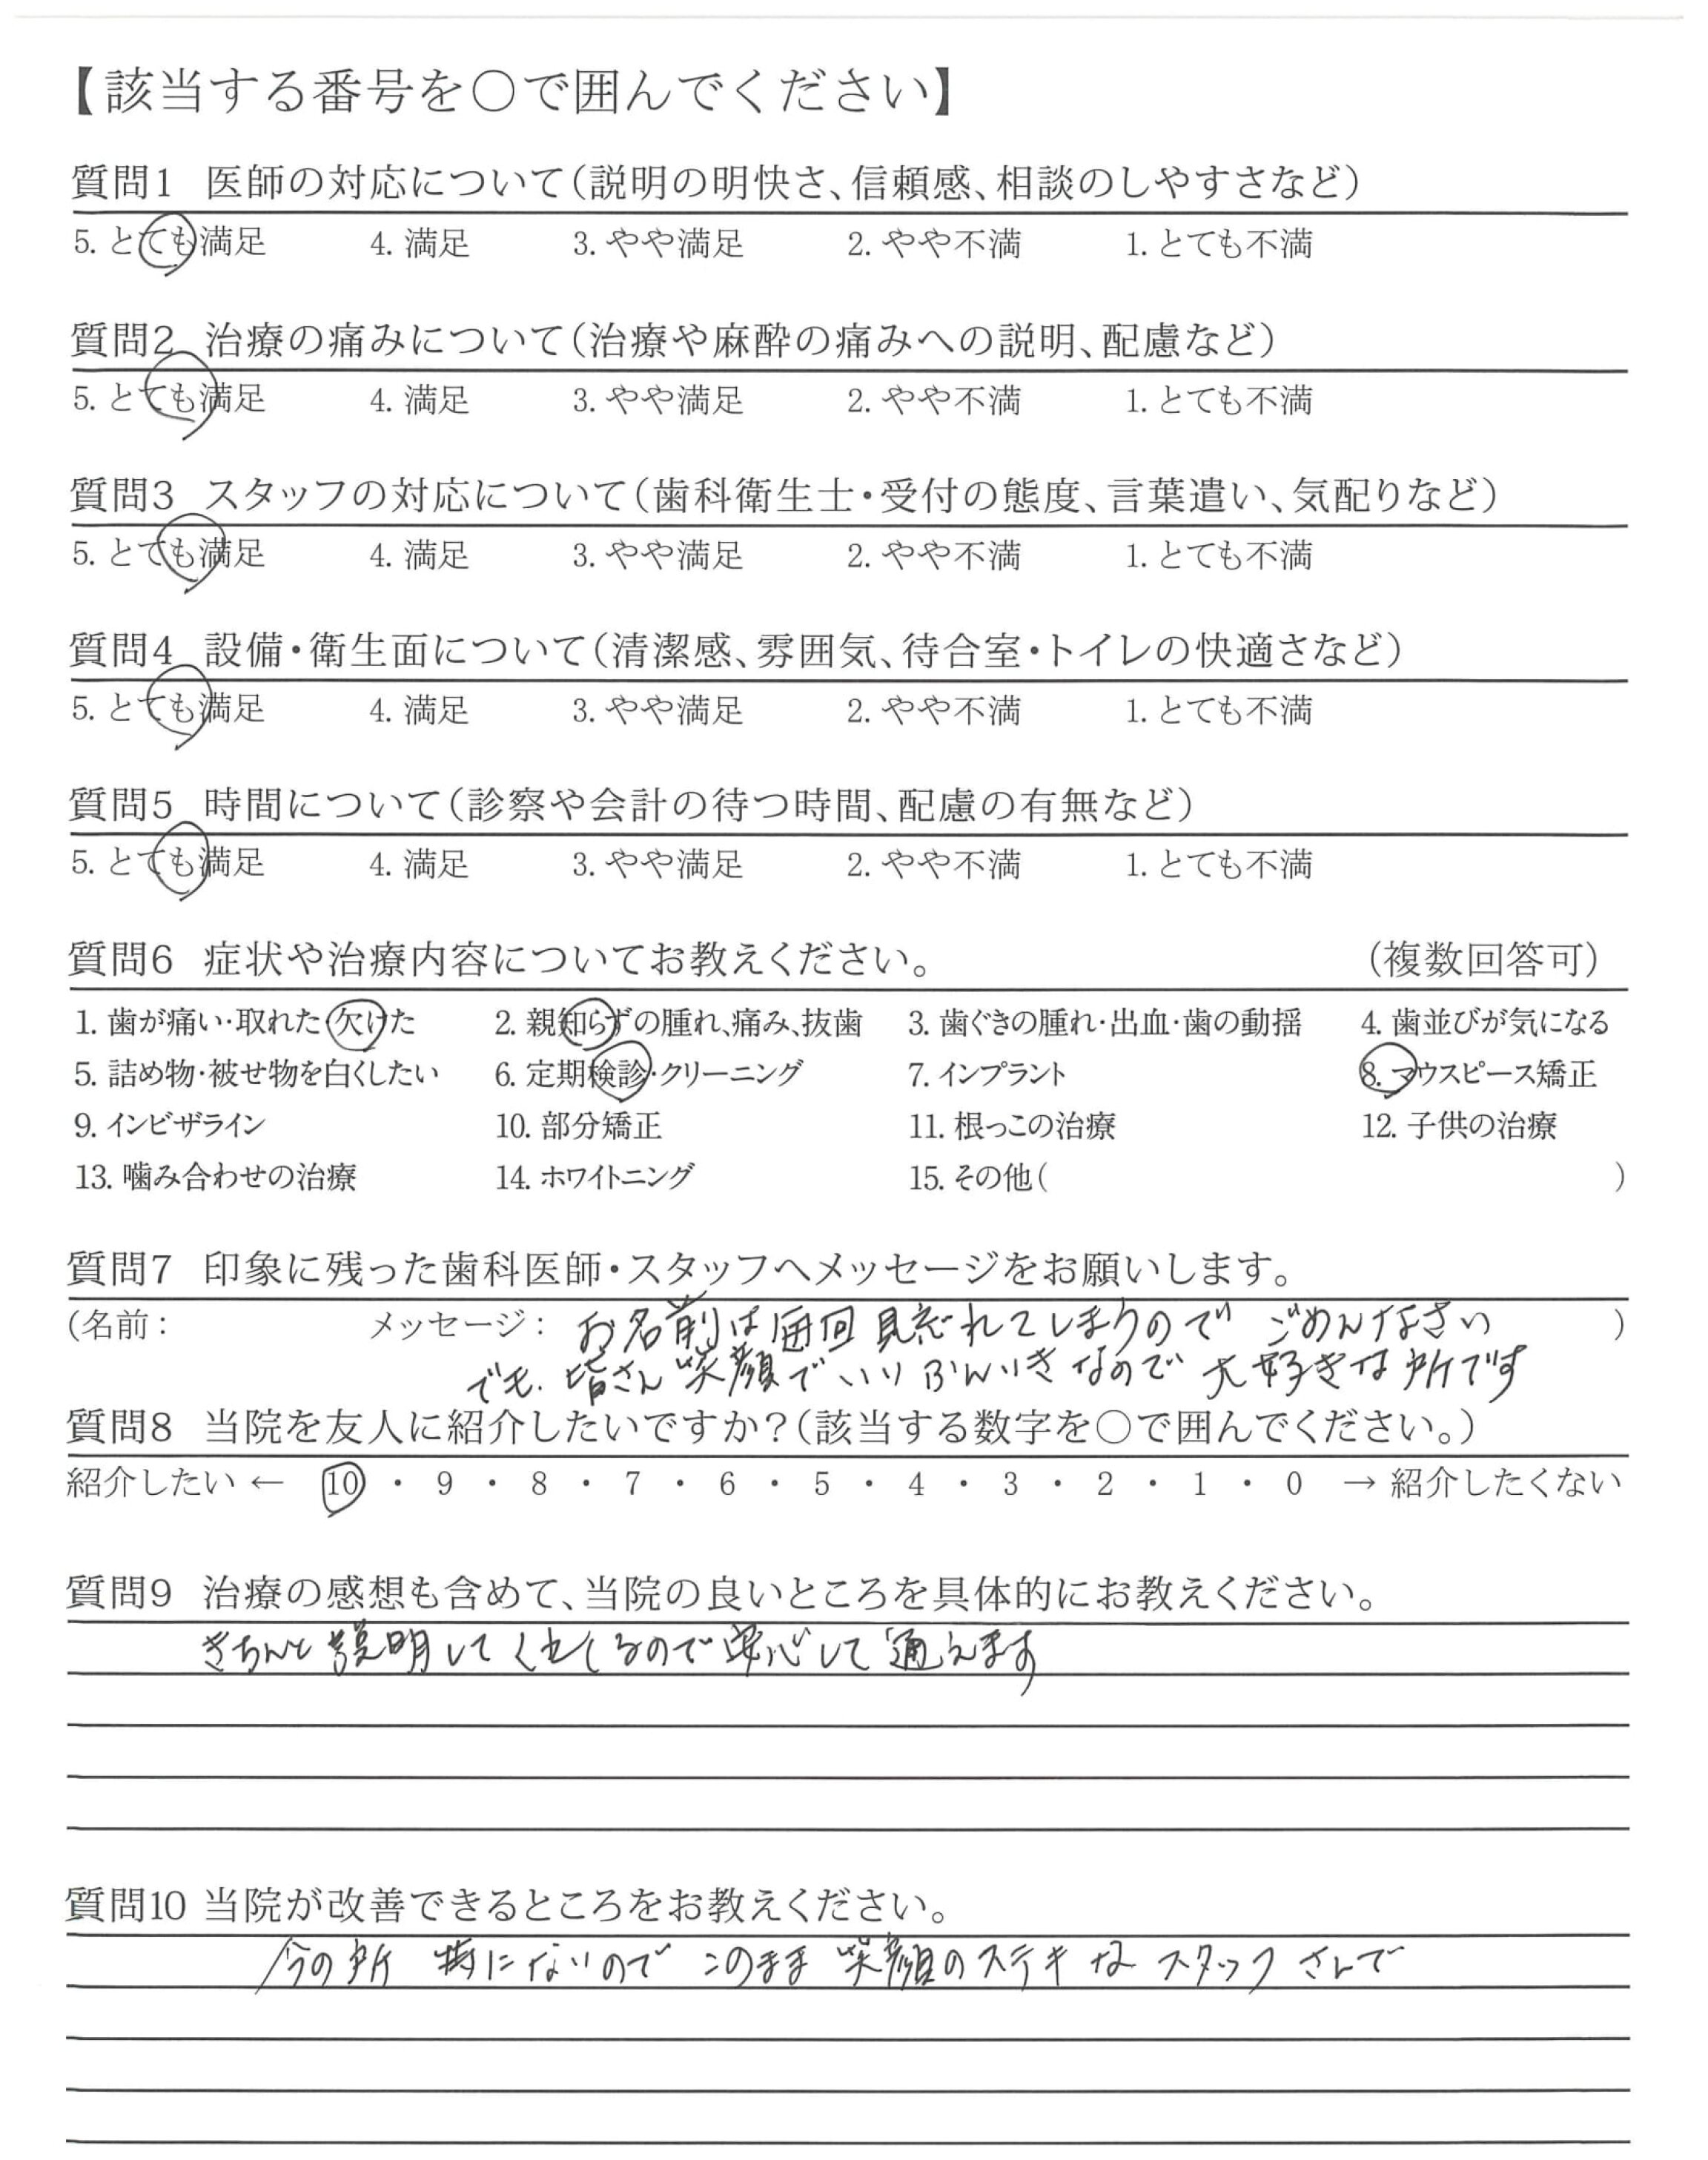 【該当する番号を〇で囲んでください】
質問1 医師の対応について(説明の明快さ、信頼感、相談のしやすさなど)
5. とても満足 4. 満足 3. やや満足 2. やや不満 1. とても不満
質問2 治療の痛みについて(治療や麻酔の痛みへの説明、配慮など)
5. とても満足 4. 満足 3. やや満足 2. やや不満 1. とても不満
質問3 スタッフの対応について(歯科衛生士・受付の態度、言葉遣い、気配りなど)
5. とても満足 4. 満足 3. やや満足 2. やや不満 1. とても不満
質問4 設備・衛生面について(清潔感、雰囲気、待合室・トイレの快適さなど)
5. とても満足 4. 満足 3. やや満足 2. やや不満 1. とても不満
質問5 時間について(診察や会計の待つ時間、配慮の有無など)
5. とても満足 4. 満足 3. やや満足 2. やや不満 1. とても不満
質問6 症状や治療内容についてお教えください。 (複数回答可)
1. 歯が痛い・取れた・欠けた 2. 親知らずの腫れ、痛み、抜歯 3. 歯ぐきの腫れ・出血・歯の動揺 4. 歯並びが気になる
5. 詰め物・被せ物を白くしたい 6. 定期検診・クリーニング 7. インプラント 8. マウスピース矯正
9. インビザライン 10. 部分矯正 11. 根っこの治療 12. 子供の治療
13. 噛み合わせの治療 14. ホワイトニング 15. その他( )
質問7 印象に残った歯科医師・スタッフへメッセージをお願いします。
(名前: メッセージ: お名前は毎回見忘れてしまうので ごめんなさい )
でも、皆さん笑顔でいいふんいきなので大好きな所です
質問8 当院を友人に紹介したいですか?(該当する数字を〇で囲んでください。)
紹介したい ← 10 ・ 9 ・ 8 ・ 7 ・ 6 ・ 5 ・ 4 ・ 3 ・ 2 ・ 1 ・ 0 → 紹介したくない
質問9 治療の感想も含めて、当院の良いところを具体的にお教えください。
きちんと説明してくれるので安心して通えます
質問10 当院が改善できるところをお教えください。
今の所 特にないので このまま 笑顔のステキな スタッフさんで